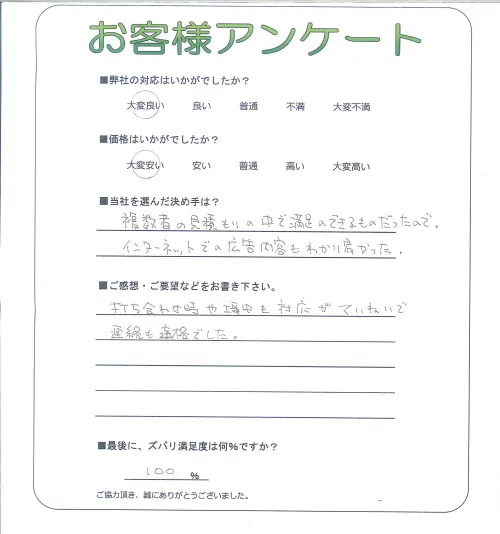 お客様アンケート
■弊社の対応はいかがでしたか?
大変良い 良い 普通 不満 大変不満
■価格はいかがでしたか?
大変安い 安い 普通 高い 大変高い
■当社を選んだ決め手は?
複数者の見積もりの中で満足のできるものだったので、
インターネットでの広告内容もわかり易かった。
■ご感想・ご要望などをお書き下さい。
打ち合わせ時や工事中も対応がていねいで
連絡も適格でした。
■最後に、ズバリ満足度は何%ですか?
100 %
ご協力頂き、誠にありがとうございました。